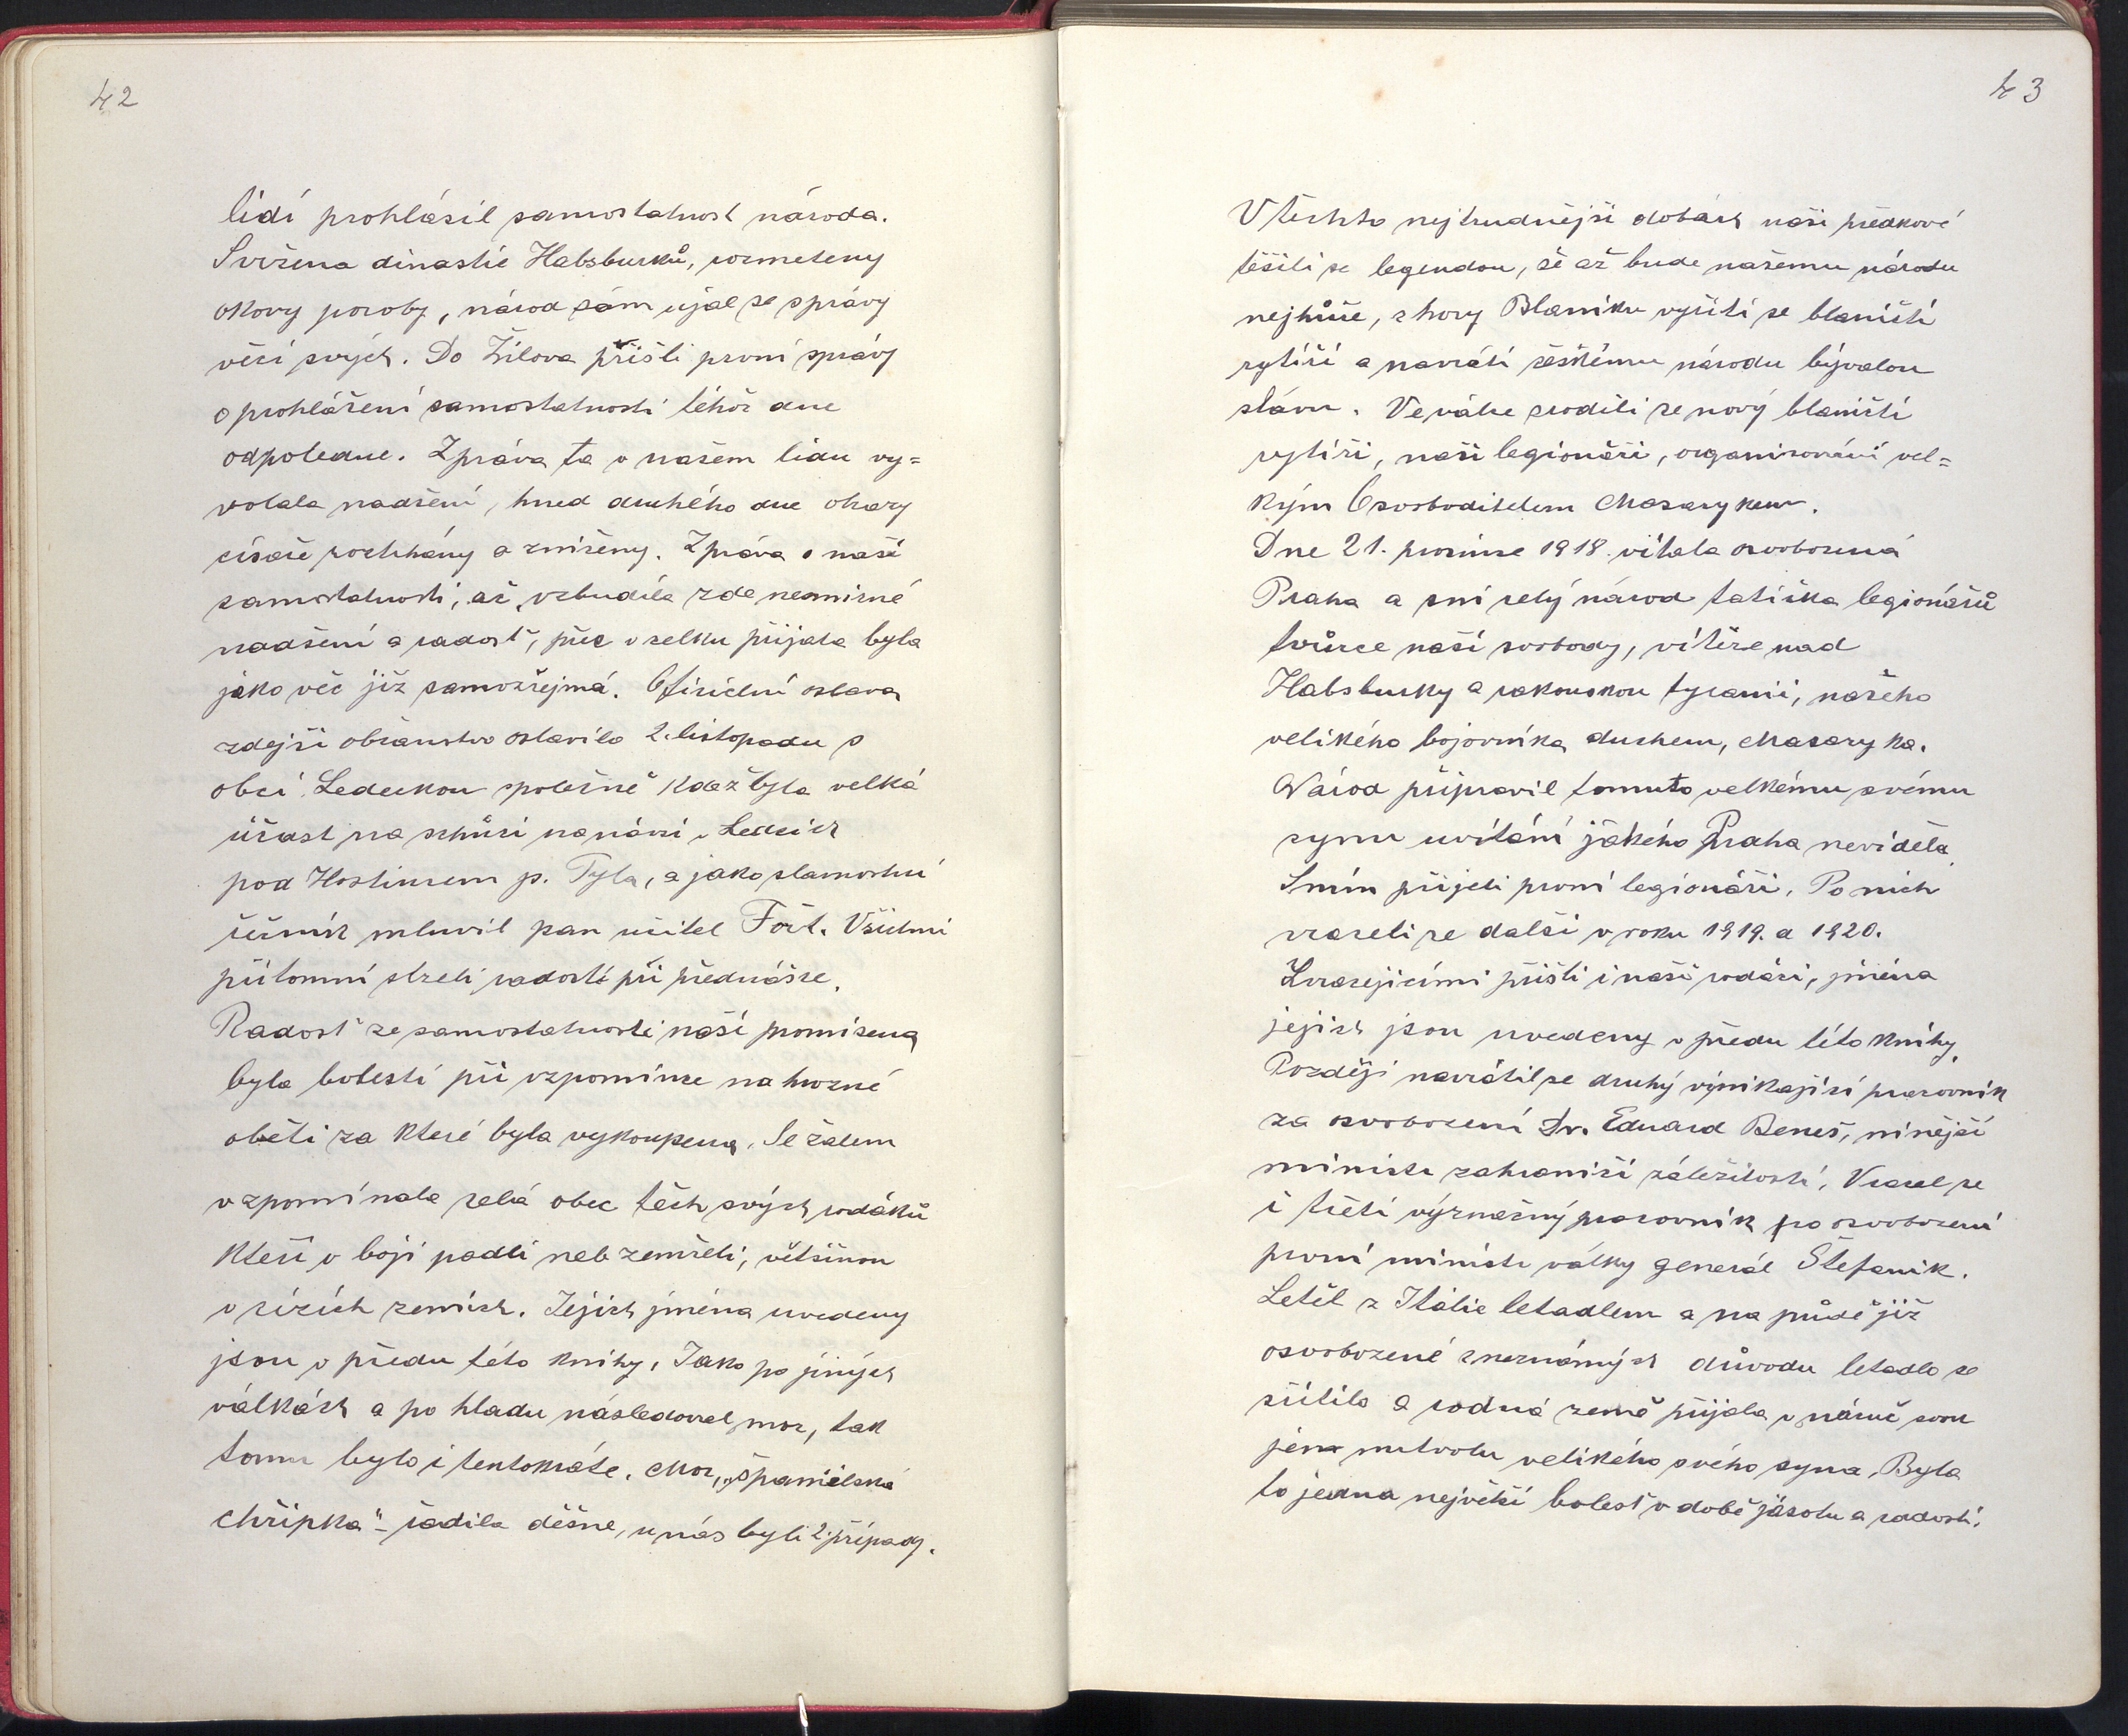 42
lidí prohlásil samostatnost národa.
Svržena dinastie Habsburků, rozmeteny
okovy poroby, národ sám ujal se správy
věcí svých. Do Žilova přišli první správy
o prohlášení samostatnosti téhož dne
odpoledne. Zpráva ta v našem lidu vy=
volala nadšení, hned druhého dne obrazy
císaře roztrhány a zničeny. Zpráva o naší
samostatnosti, ač vzbudila zde nesmírné
nadšení a radosť, přec v celku přijata byla
jako věc již samozřejmá. Oficielní oslava
zdejší občanstvo oslavilo 2. listopadu s
obcí Ledeckou společně kdež byla velká
účast na schůzi na návsi v Ledcích
pod Hostincem p. Tyla, a jako slavnostní
řečník mluvil pan učitel Fořt. Všichni
přítomní slzeli radostí při přednášce.
Radosť ze samostatnosti naší promísena
byla bolestí při vzpomínce na hrozné
oběti za které byla vykoupena. Se žalem
vzpomínala celá obec těch svých rodáků
kteří v boji padli neb zemřeli, většinou
v cizích zemích. Jejich jména uvedeny
jsou v předu této knihy. Jako po jiných
válkách a po hladu následoval mor, tak
tomu bylo i tentokráte. Mor, „španělská
chřipka" - řadila děsně, u nás byli 2 případy.
43
V těchto nejtrudnější dobách naši předkové
těšili se legendou, že až bude našemu národu
nejhůře, z hory Blaníku vyřítí se blaničtí
rytíři a navrátí českému národu bývalou
slávu. Ve válce zrodili se nový blaničtí
rytíři, naši legionáři, organisováni vel=
kým Osvoboditelem Masarykem.
Dne 21. prosince 1918. vítala osvobozená
Praha a sní celý národ tatíčka legionářů
tvůrce naší svobody, vítěze nad
Habsburky a rakouskou tyranii, našeho
velikého bojovníka duchem, Masaryka.
Národ připravil tomuto velkému svému
synu uvítání jakého Praha neviděla.
Sním přijeli první legionáři. Po nich
vraceli se další v roku 1919. a 1920.
Zvracejícími přišli i naši rodáci, jména
jejich jsou uvedeny v předu této knihy.
Později navrátil se druhý vynikající pracovník
za osvobození Dr. Eduard Beneš, ninější
ministr zahraničí záležitostí. Vracel se
i třetí význačný pracovník po osvobození
první ministr války generál Štefanik.
Letěl z Itálie letadlem a na půdě již
osvobozené z neznámých důvodu letadlo se
zřítilo a rodná země přijala v náruč svou
jen mrtvolu velikého svého syna. Byla
to jedna největší bolesť v době jásotu a radosti.